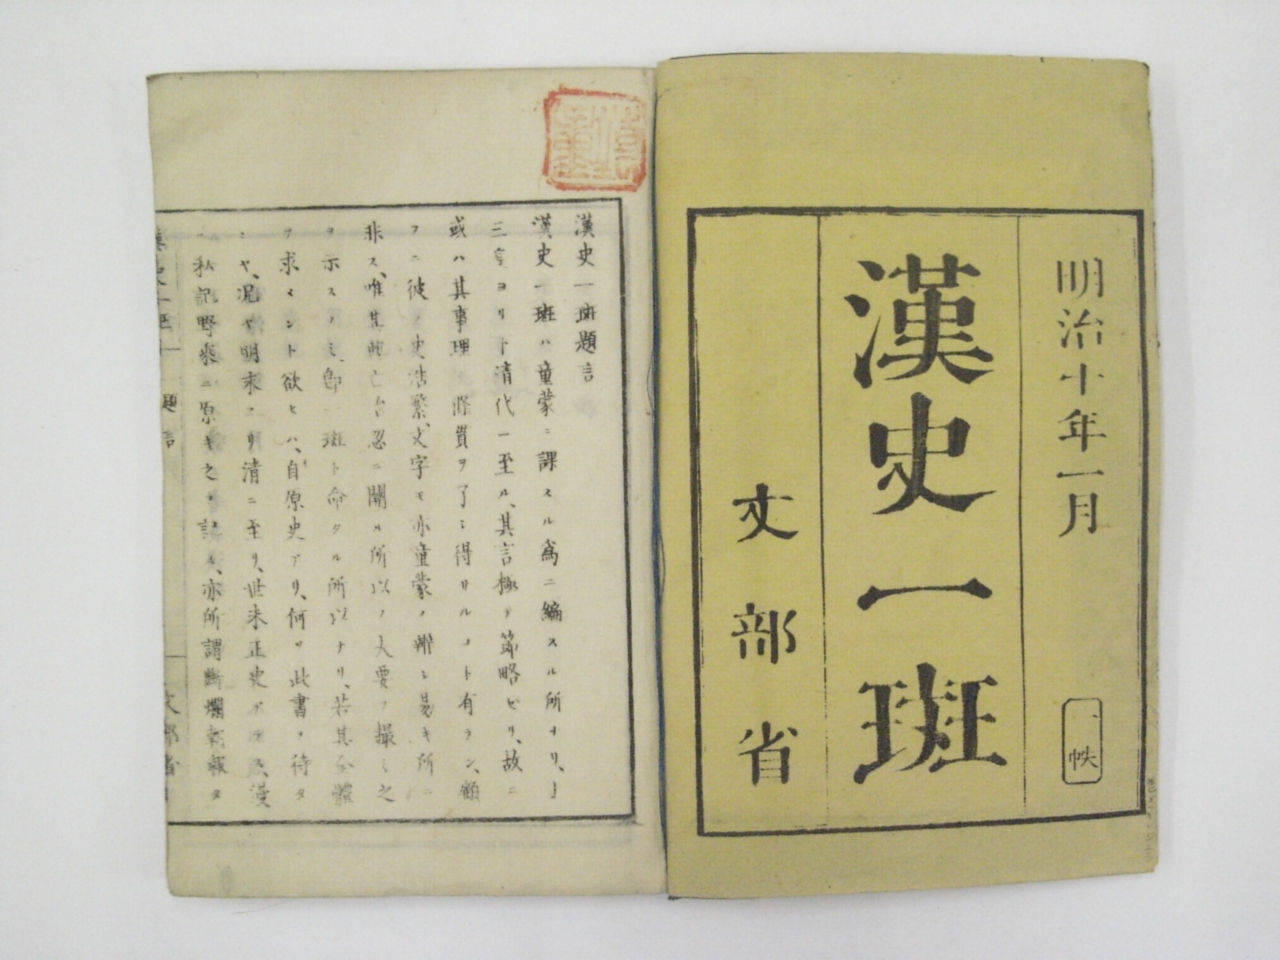 明治十年一月
一帙
漢史一班
文部省
漢史一班題言
漢史一班ハ童蒙ニ課スル為ニ編スル所ナリ、上
三皇ヨリ下清代ニ至ル、其言極テ節略セリ、故ニ
或ハ其事理ノ條貫ヲ了シ得サルコト有ラン、顧
フニ彼ノ史浩繁、文字モ亦童蒙ノ辨シ易キ所ニ
非ス、唯其興亡治忽ニ關スル所以ノ大要ヲ撮シ之
ヲ示スノミ、即一班ト命クル所以ナリ、若其全體
ヲ求メント欲セハ、自原史アリ、何ソ此書ヲ待タ
ンヤ、況ヤ明末ヨリ清ニ至リ、世未正史アラス、漫
私記野乘ニ原キ之ヲ謀ル、亦所謂斷爛朝報タ
漢史一班 題言
文部省